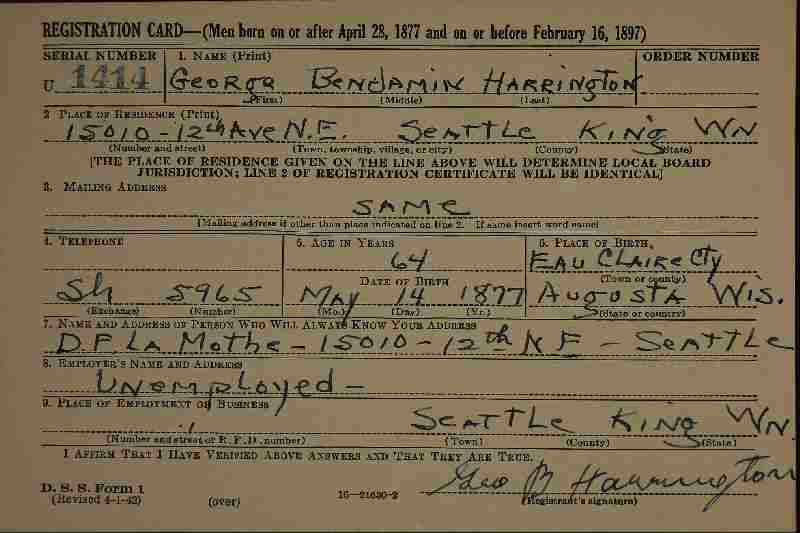 REGISTRATION CARD—(Men born on or after April 28, 1877 and on or before February 16, 1897)
SERIAL NUMBER 1. NAME (Print) ORDER NUMBER
U 1414 GEORGE BENJAMIN HARRINGTON
(First) (Middle) (Last)
2 PLACE OF RESIDENCE (Print)
15010-12th AVE N.E. SEATTLE KING WN
(Number and street) (Town, township, village, or city) (County) (State)
[THE PLACE OF RESIDENCE GIVEN ON THE LINE ABOVE WILL DETERMINE LOCAL BOARD
JURISDICTION; LINE 2 OF REGISTRATION CERTIFICATE WILL BE IDENTICAL]
3. MAILING ADDRESS
SAME
[Mailing address if other than place indicated on line 2. If same insert word same]
4. TELEPHONE 5. AGE IN YEARS 6. PLACE OF BIRTH
64 EAU CLAIRE CTY
DATE OF BIRTH (Town or county)
Sh 5965 MAY 14 1877 AUGUSTA WIS.
(Exchange) (Number) (Mo.) (Day) (Yr.) (State or country)
7. NAME AND ADDRESS OF PERSON WHO WILL ALWAYS KNOW YOUR ADDRESS
D.F. LA Mothe - 15010 - 12th N E - SEATTLE
8. EMPLOYER'S NAME AND ADDRESS
Unemployed -
9. PLACE OF EMPLOYMENT OR BUSINESS
SEATTLE KING WN.
(Number and street or R. F. D. number) (Town) (County) (State)
I AFFIRM THAT I HAVE VERIFIED ABOVE ANSWERS AND THAT THEY ARE TRUE.
Geo B Harrington
D. S. S. Form 1
(Revised 4-1-42) (over) 16-21630-2 (Registrant's signature)